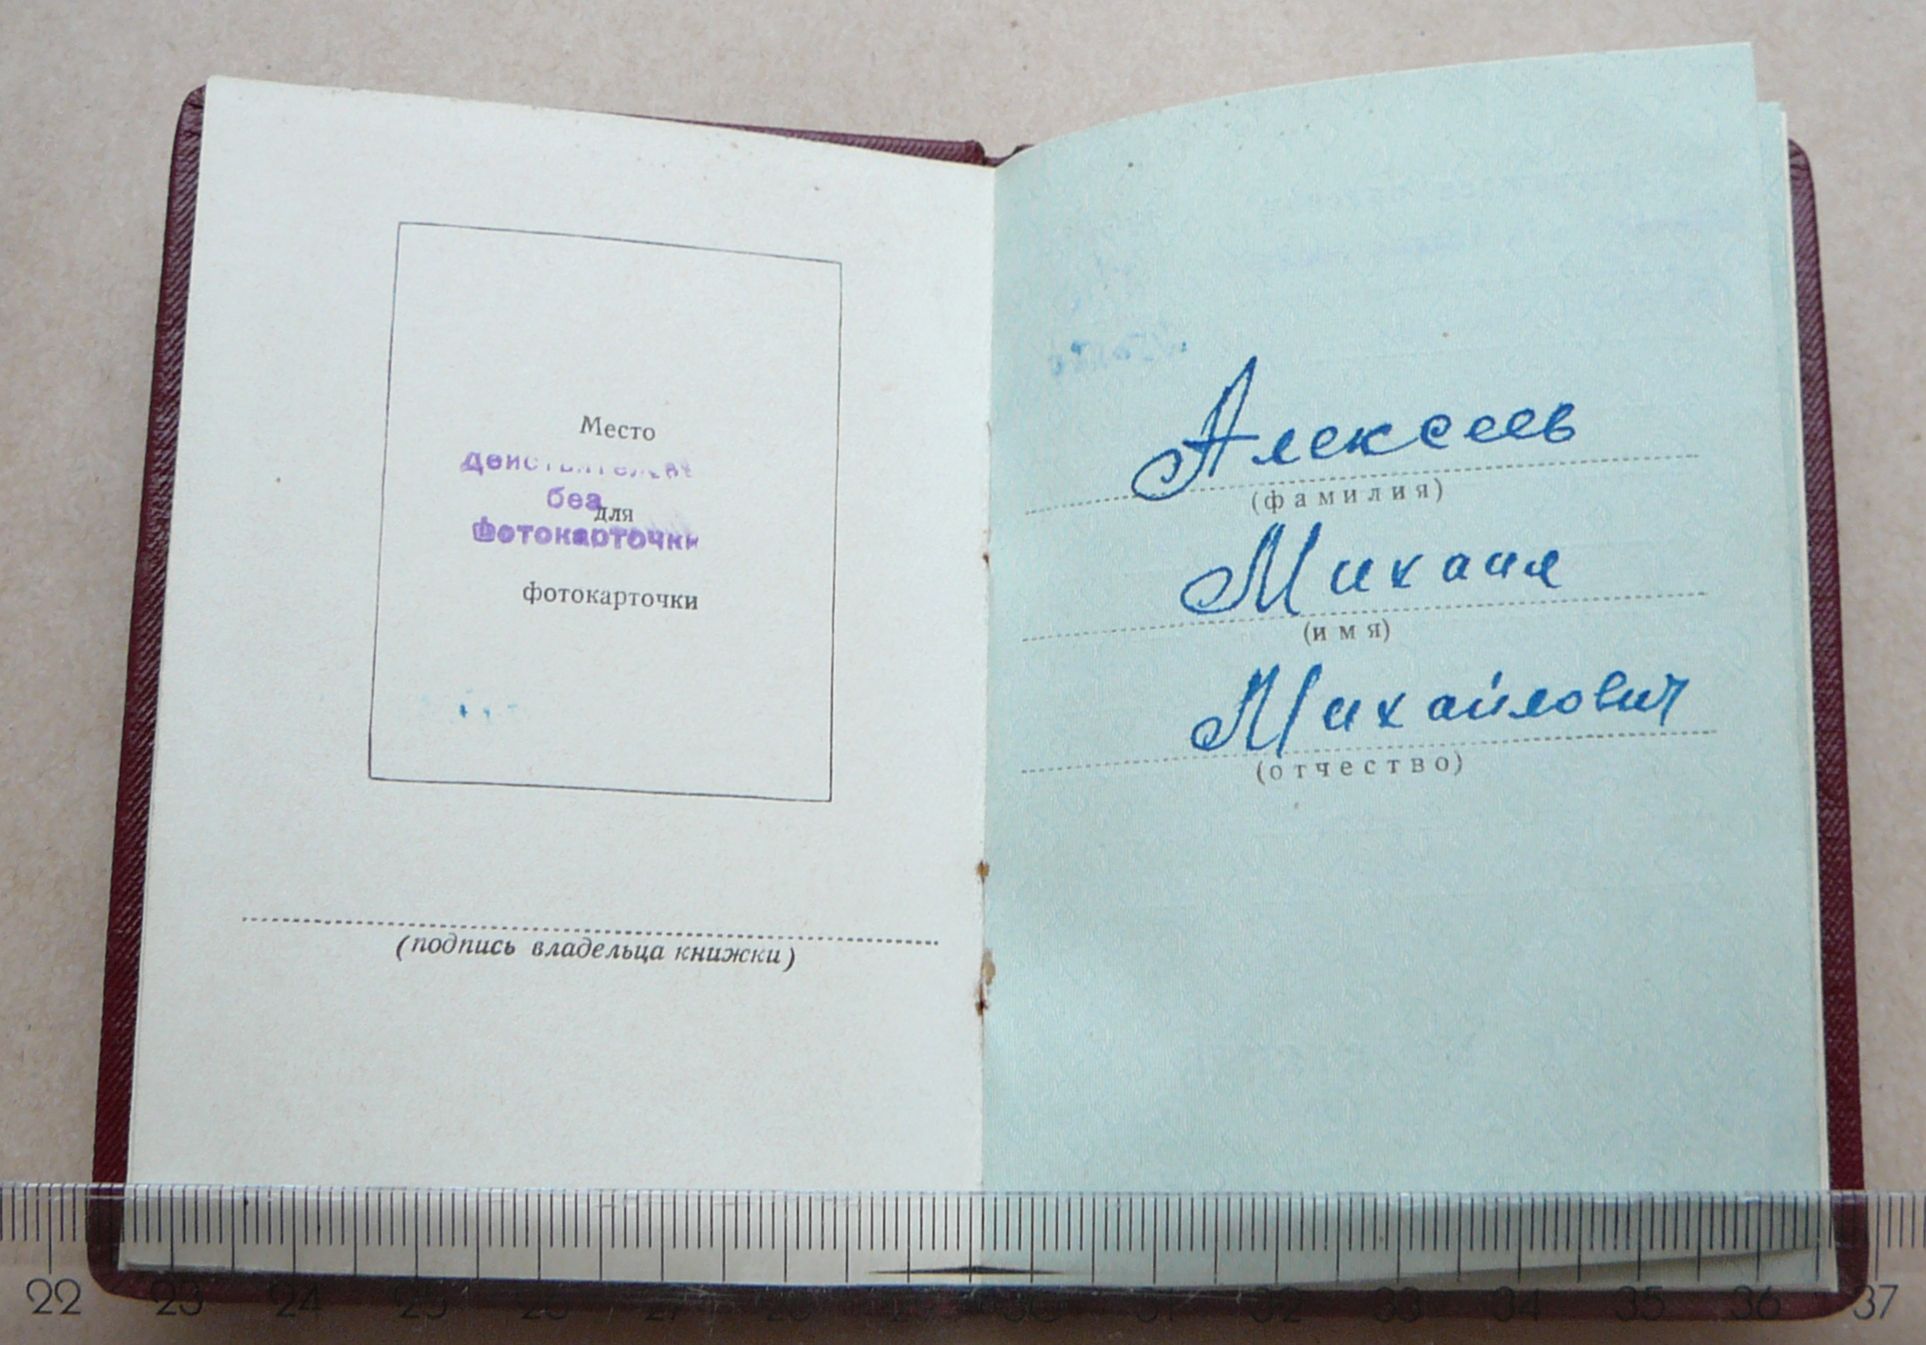 Место
действительна
без
для
фотокарточки
фотокарточки
(подпись владельца книжки)
Алексеев
(фамилия)
Михаил
(имя)
Михайлович
(отчество)
22 23 24 25 26 27 28 29 30 31 32 33 34 35 36 37